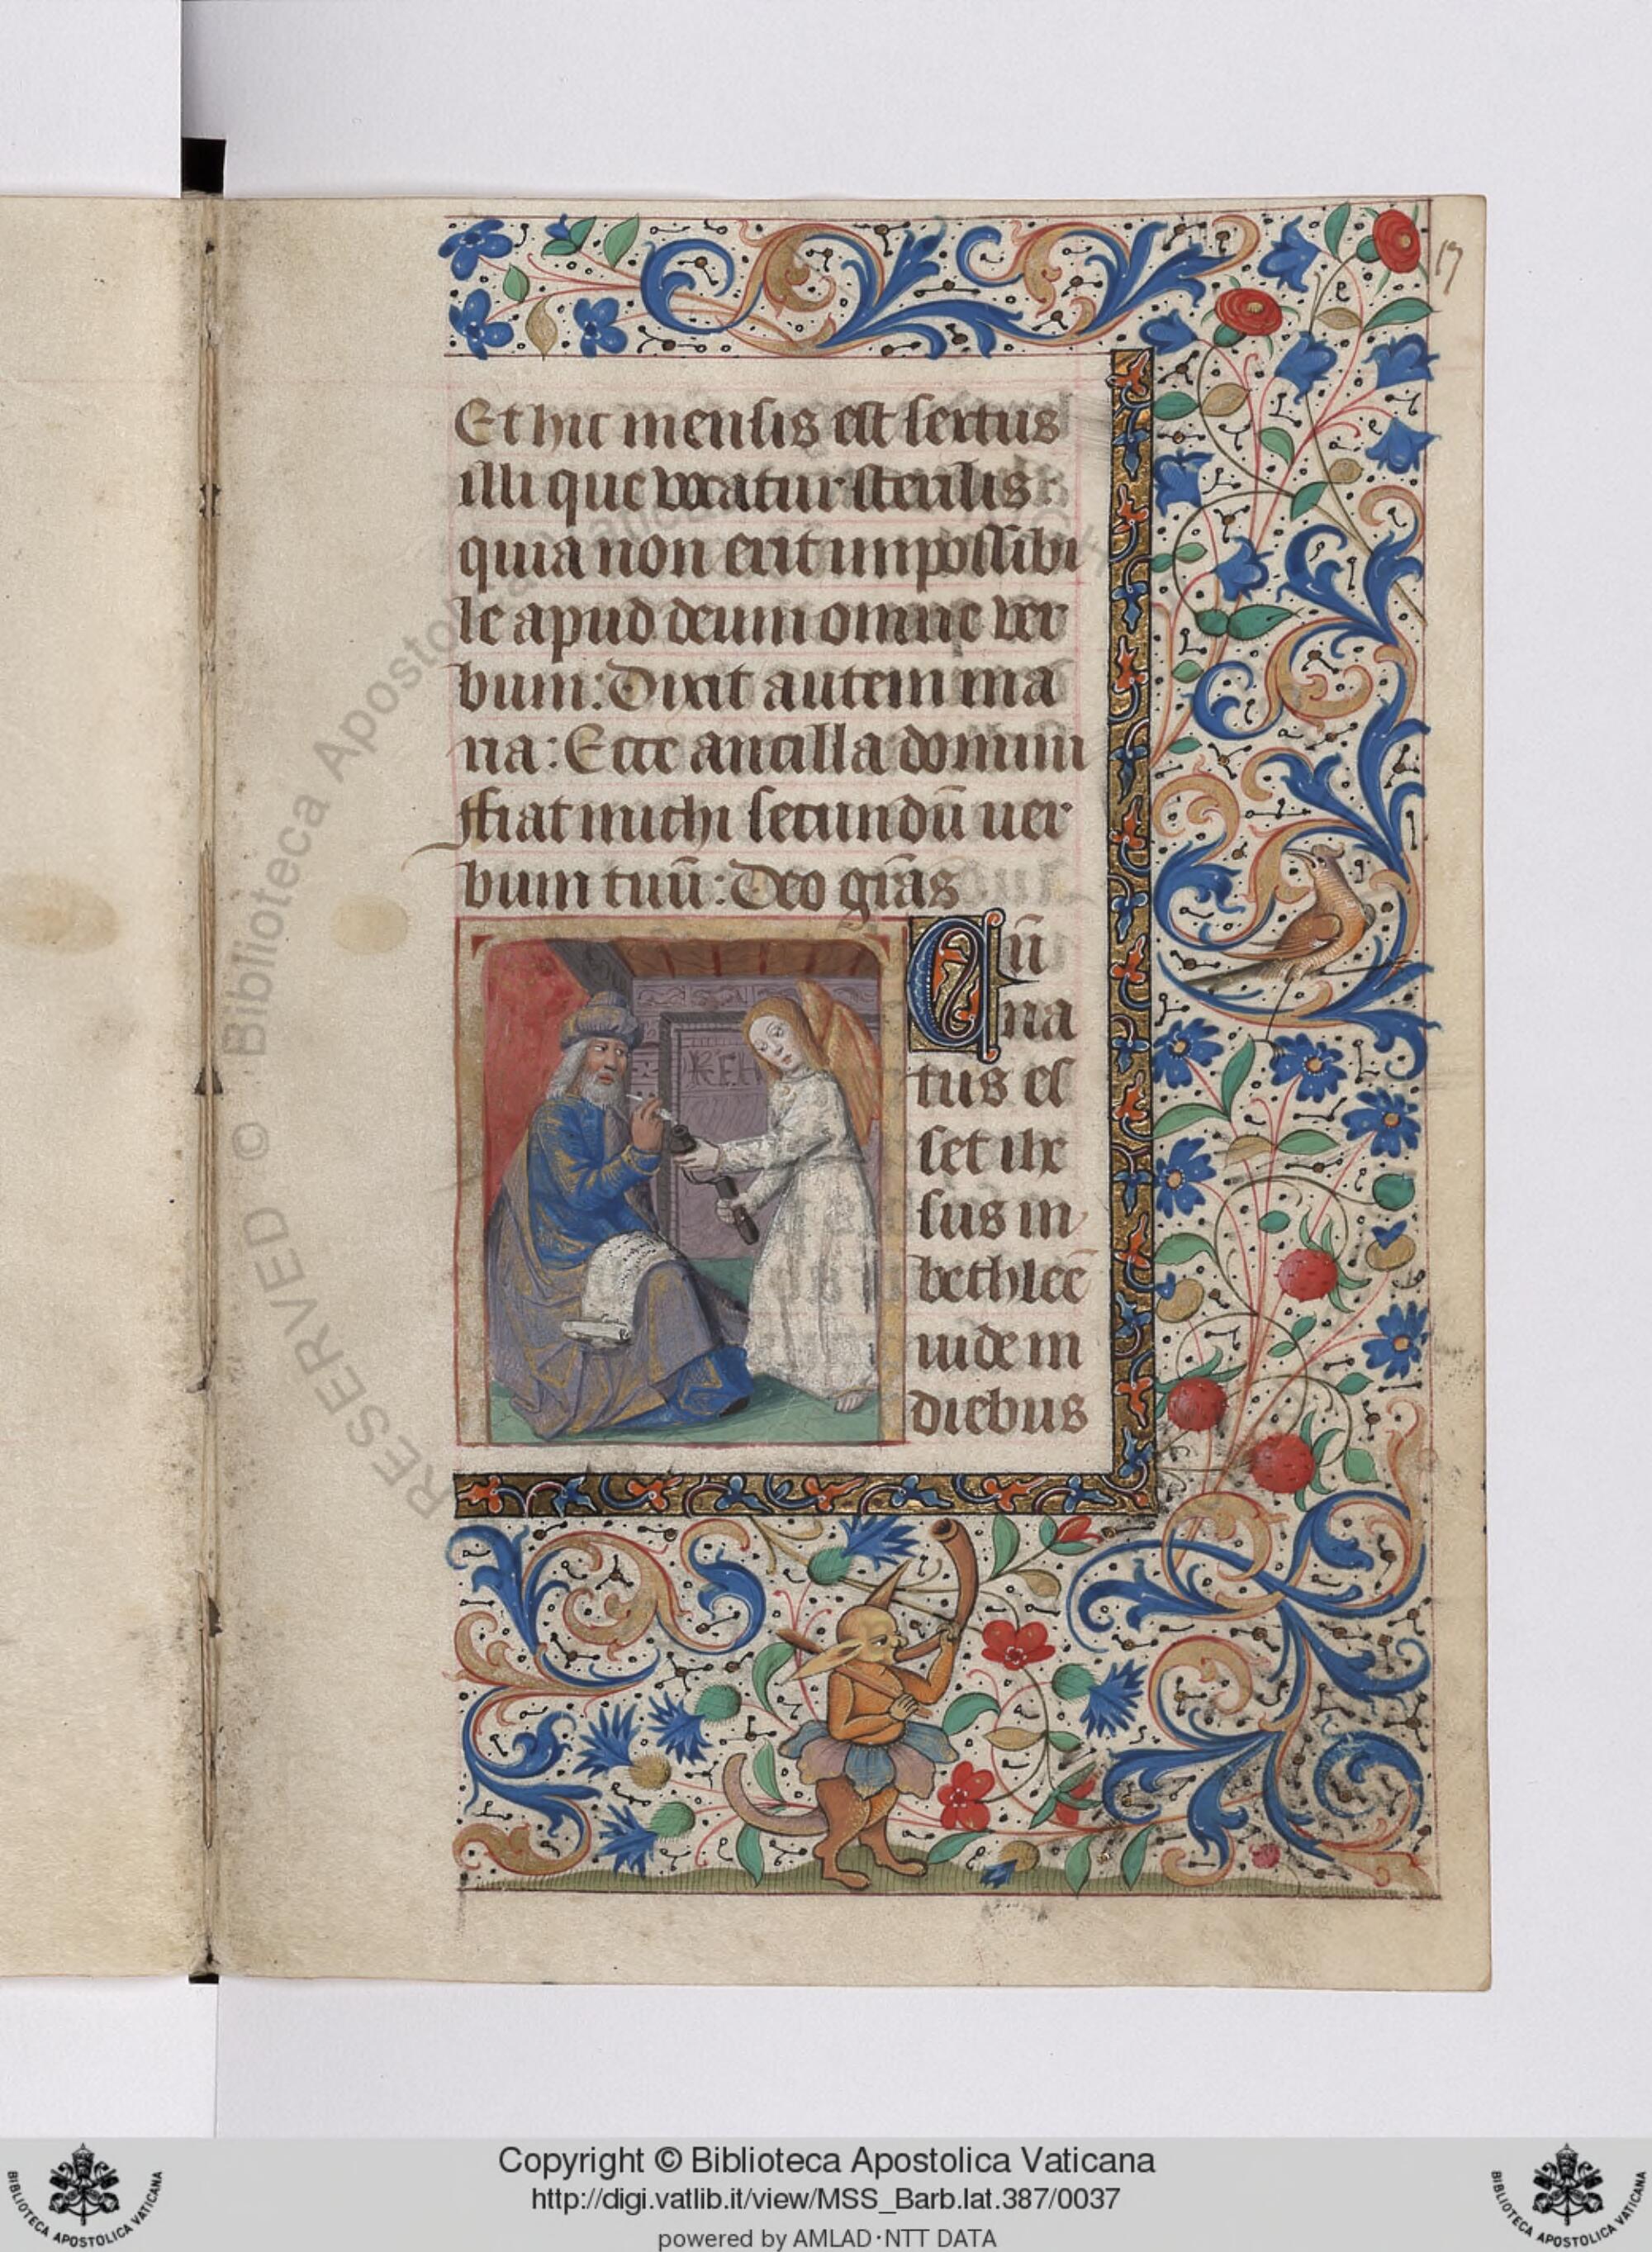 17
Et hic mensis est sextus
illi que vocatur sterilis
quia non erit impossibi
le apud deum omne ver
bum: Dixit autem ma
ria: Ecce ancilla domini
ffiat michi secundū uer
bum tuū: Deo grās
Cū
na
tus es
set ihe
sus in
bethleē
iude in
diebus
RESERVED © Biblioteca Apostolica
Copyright © Biblioteca Apostolica Vaticana
http://digi.vatlib.it/view/MSS_Barb.lat.387/0037
powered by AMLAD·NTT DATA
BIBLIOTECA APOSTOLICA VATICANA
BIBLIOTECA APOSTOLICA VATICANA